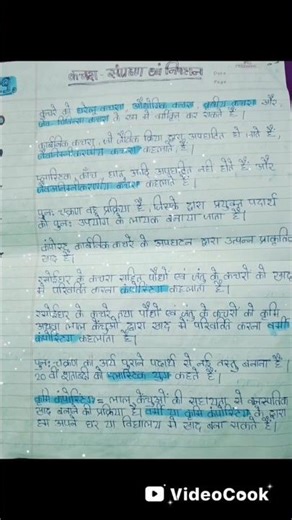 कचरा - संग्रहण एवं निपटान
Date
Page
कूड़े को घरेलू कचरा, औद्योगिक कचरा, कृषीय कचरा और
के रूप में वर्गीकृत कर सकते हैं।
कार्बनिक कचरा, जो जैविक क्रिया द्वारा अपघटित हो जाते हैं,
कहलाते हैं।
प्लास्टिक, काँच, धातु आदि अपघटित नहीं होते हैं और
कहलाते हैं।
पुनः चक्रण वह प्रक्रिया है, जिसके द्वारा प्रयुक्त पदार्थ
को पुनः उपयोग के लायक बनाया जाता है।
कंपोस्ट कार्बनिक कचरे के अपघटन द्वारा उत्पन्न प्राकृतिक
खाद है।
रसोईघर के कचरा सहित पौधों एवं जंतु के कचरों को खाद
में परिवर्तित करना कंपोस्टिंग कहलाता है।
रसोईघर के कचरे तथा पौधों एवं जंतु के कचरों को कृमि
अथवा लाल केंचुओं द्वारा खाद में परिवर्तित करना वर्मी
कंपोस्टिंग कहलाता है।
पुनः चक्रण का अर्थ पुराने पदार्थ से नई वस्तु बनाना है।
20 वीं शताब्दी को प्लास्टिक युग कहते हैं।
कृमि कंपोस्टिंग = लाल केंचुओं की सहायता से
खाद बनाने की प्रक्रिया है। वर्मी या कृमि कंपोस्टिंग के द्वारा
हम अपने घर या विद्यालय में खाद बना सकते हैं।
VideoCook